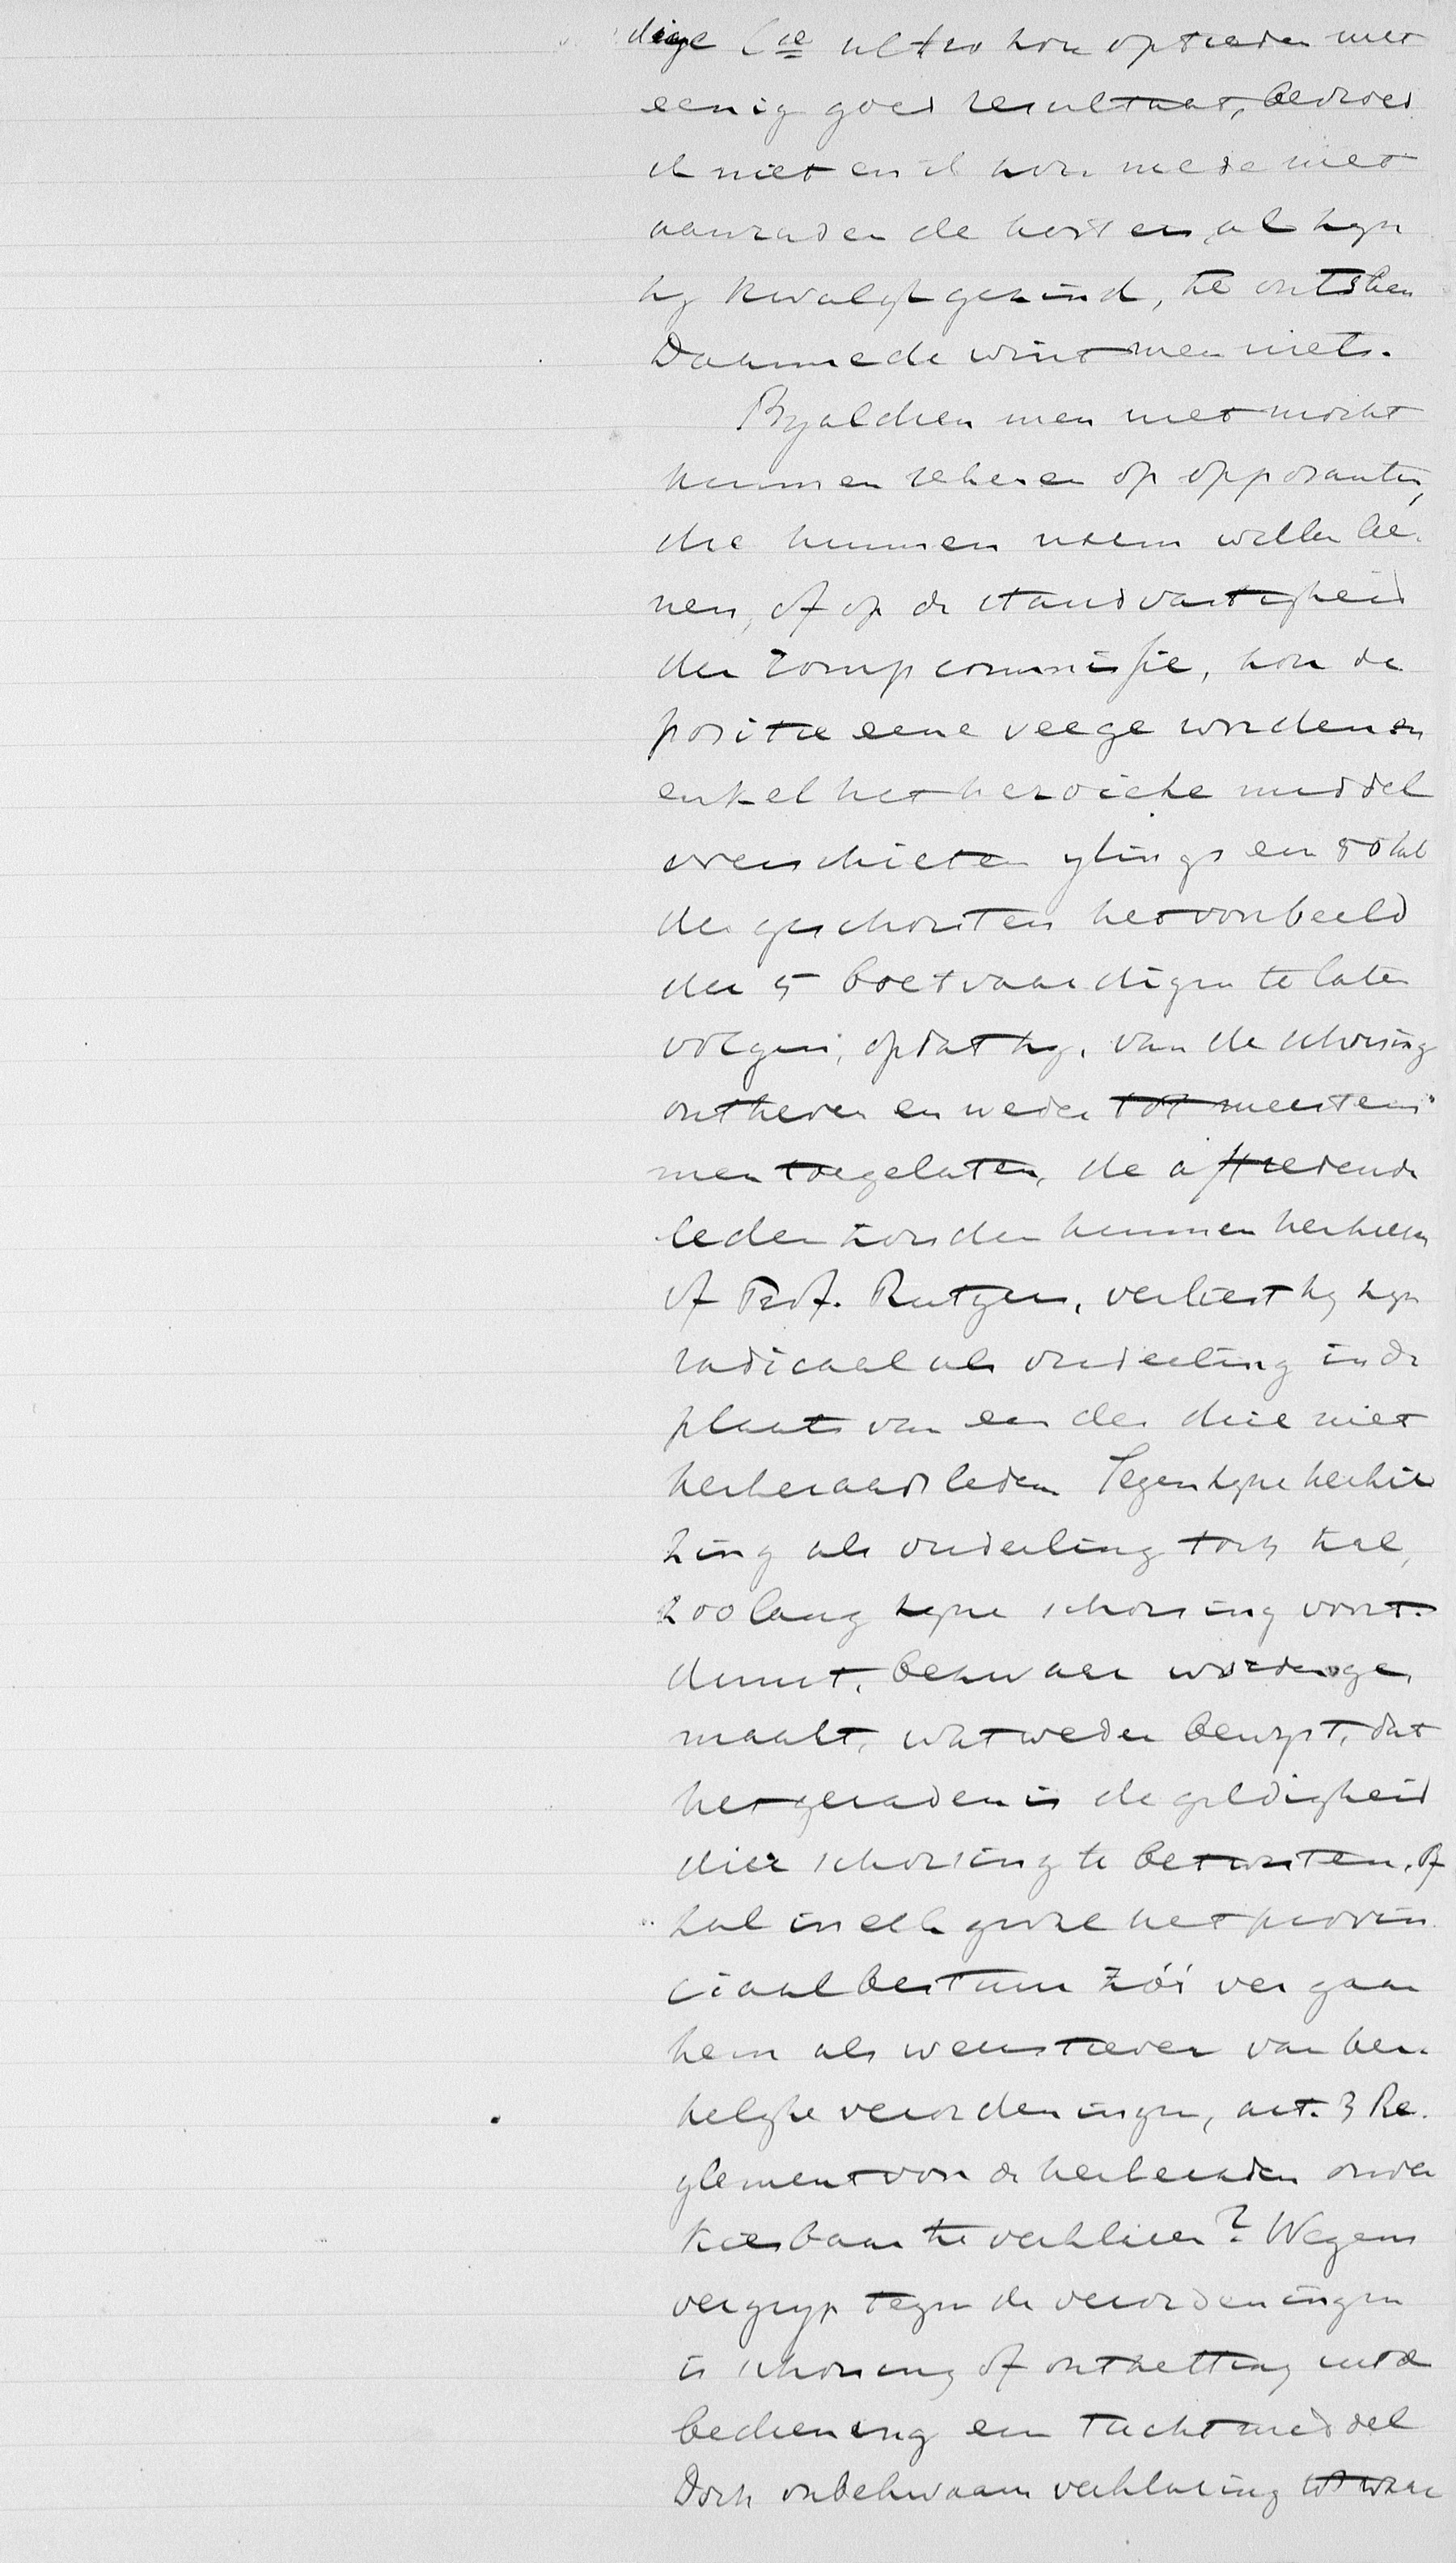 dige Cie ultro kon optreden met
eenig goed resultaat, bevroed
ik niet en ik kon mede niet
aanraden de kosters, al zijn
zy kwalijkgezind, te ontslaan
Daarmede wint men niets.
Byaldien men niet mocht
kunnen rekenen op opposanten,
die hunnen naam willen lee-
nen, of op de standvastigheid
der rompcommissie, kon de
positie eene veege worden en
enkel het heroieke middel
overschieten ylings een 80tal
der geschorsten het voorbeeld
der 5 boetvaardigen te laten
volgen, opdat zy, van de schorsing
ontheven en weder tot meestem-
men toegelaten, de aftredende
leden zouden kunnen herkiezen
of Prof. Rutgers, verliest hy zyn
radicaal als ouderling in de
plaats van een der drie niet
kerkeraadsleden Tegen zyne herkie
zing als ouderling toch zal,
zoolang zyne schorsing voort-
duurt, bezwaar worden ge-
maakt, wat weder bewyst, dat
het geraden is de geldigheid
dier schorsing te betwisten. Of
zal in elk geval het provin
ciaal bestuur zóó ver gaan
hem als weerstrever van ker-
kelyke verordeningen, art. 3 Re-
glement voor de kerkeraden onver
kiesbaar te verklaren? Wegens
vergryp tegen de verordeningen
is schorsing of ontzetting uit de
bediening een tuchtmiddel
Doch onbekwaam verklaring tot waar